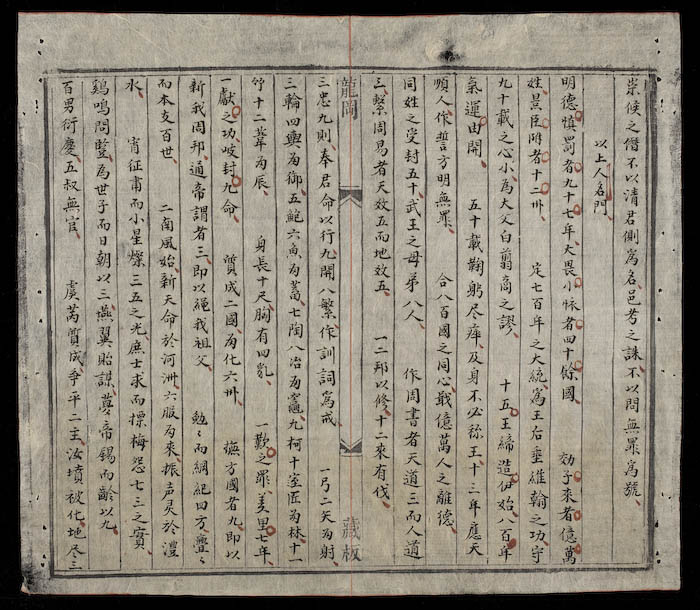 崇侯之僭不以清君側爲名邑考之誅不以問無罪爲號
以上人名門
明德慎罰者九十七年大畏小怀者四十餘國 効子來者億萬
姓景臣附者十二卅 定七百年之大統爲王后垂維翰之功守
九十載之心小爲大父白翦商之謬 十五王締造伊始八百年
氣運由開 五十載鞠躬尽瘁及身不必称王十三年應天
順人作誓方明無罪 合八百國之同心戢億萬人之離德
同姓之受封五十武王之母弟八人 作周書者天道三而人道
三繫周易者天效五而地效五 一二邦以修十二來有伐
龍岡 藏板
三忠九則奉君命以行九開八繁作訓詞爲戒 一弓二矢为射
三輪四輿为御五鮑六魚为蓄七陶八冶为竈九柯十匠为林十一
竹十二葦为辰 身長十尺胸有四乳 一歎之罪羑里七年
一獻之功岐封九命 質成二國为化六州 撫方國者九即以
新我周邦通帝謂者三即以绳我祖父 勉々而綱紀四方亹々
而本支百世 二南風始新天命於河洲六服为來振声灵於澧
水 宵征肅而小星燦三五之光庶士求而摽梅怨七三之實
鷄鳴問豎为世子而日朝以三燕翼貽謀夢帝錫而齡以九
百男衍慶五叔無官 虞芮質成争平二主汝墳被化地尽三